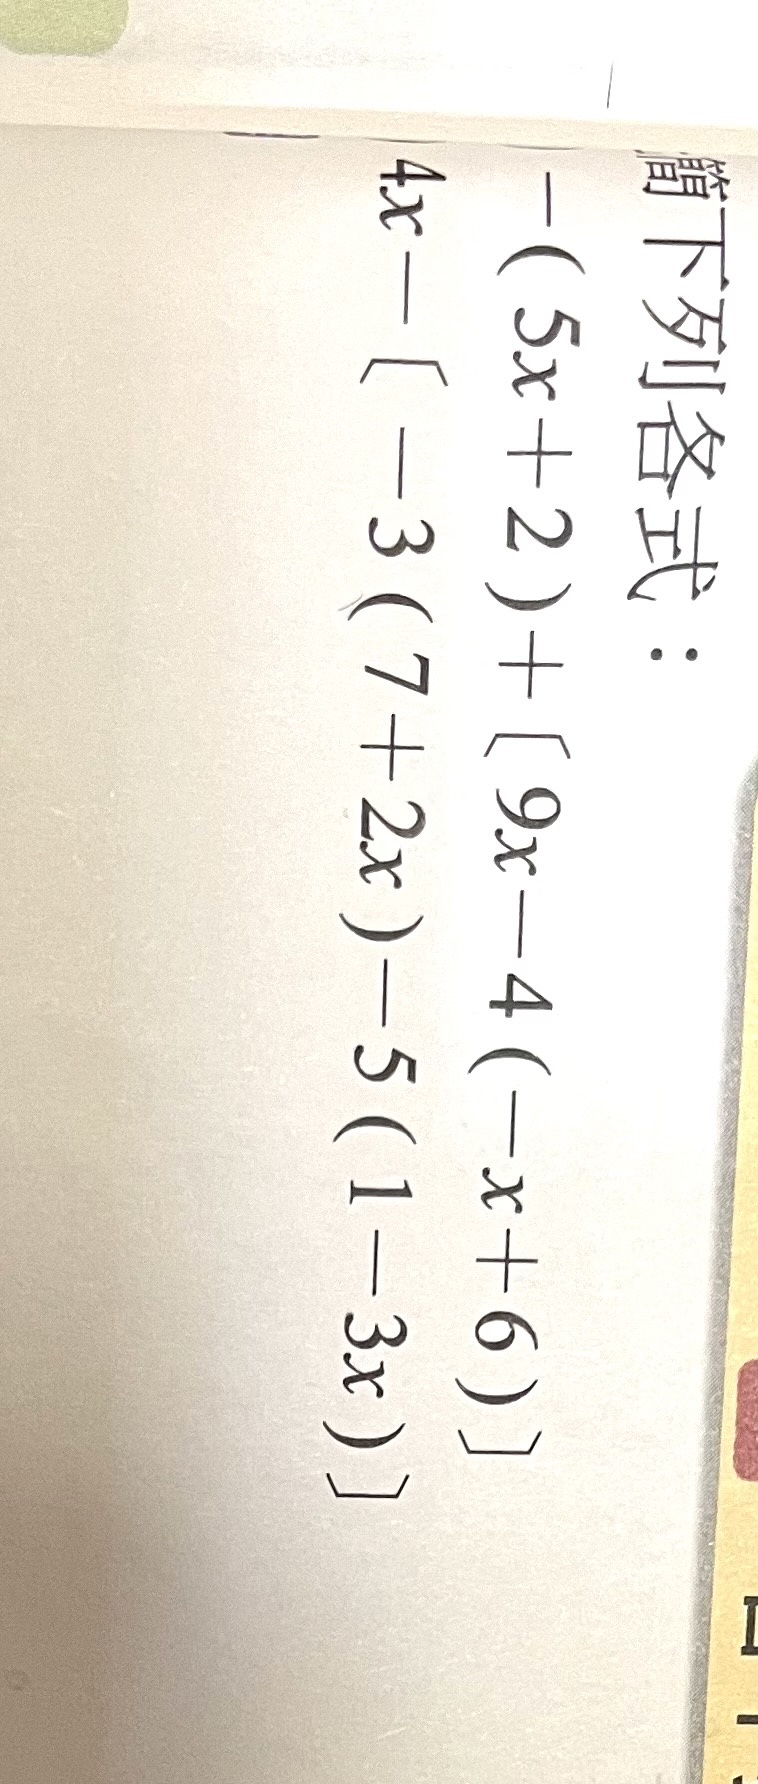 簡下列各式：
-(5x+2)+〔9x-4(-x+6)〕
4x-〔-3(7+2x)-5(1-3x)〕